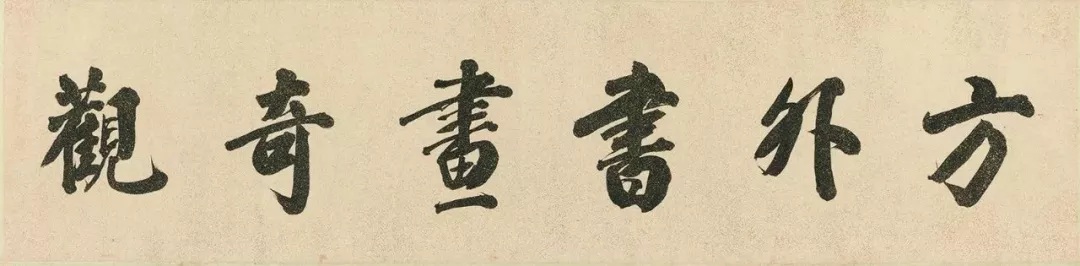 方外書畫奇觀